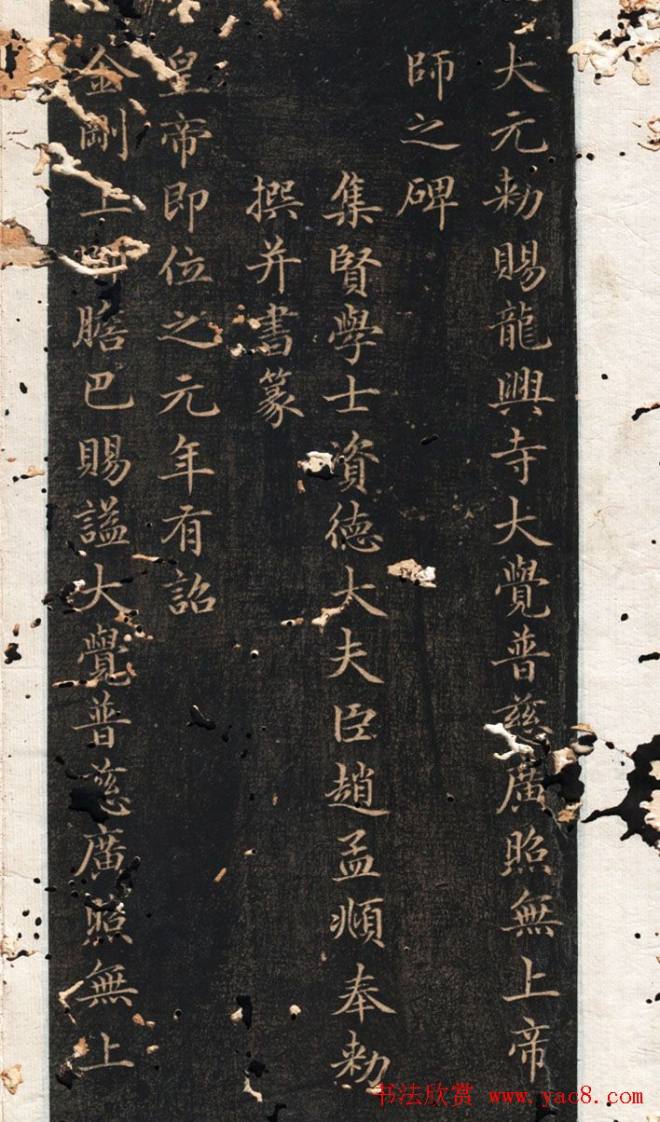 大元勑賜龍興寺大覺普慈廣照無上帝
師之碑
集賢學士資德大夫臣趙孟頫奉勑
撰并書篆
皇帝即位之元年有詔
金剛上膽巴賜謚大覺普慈廣照無上
书法欣赏 www.yac8.com